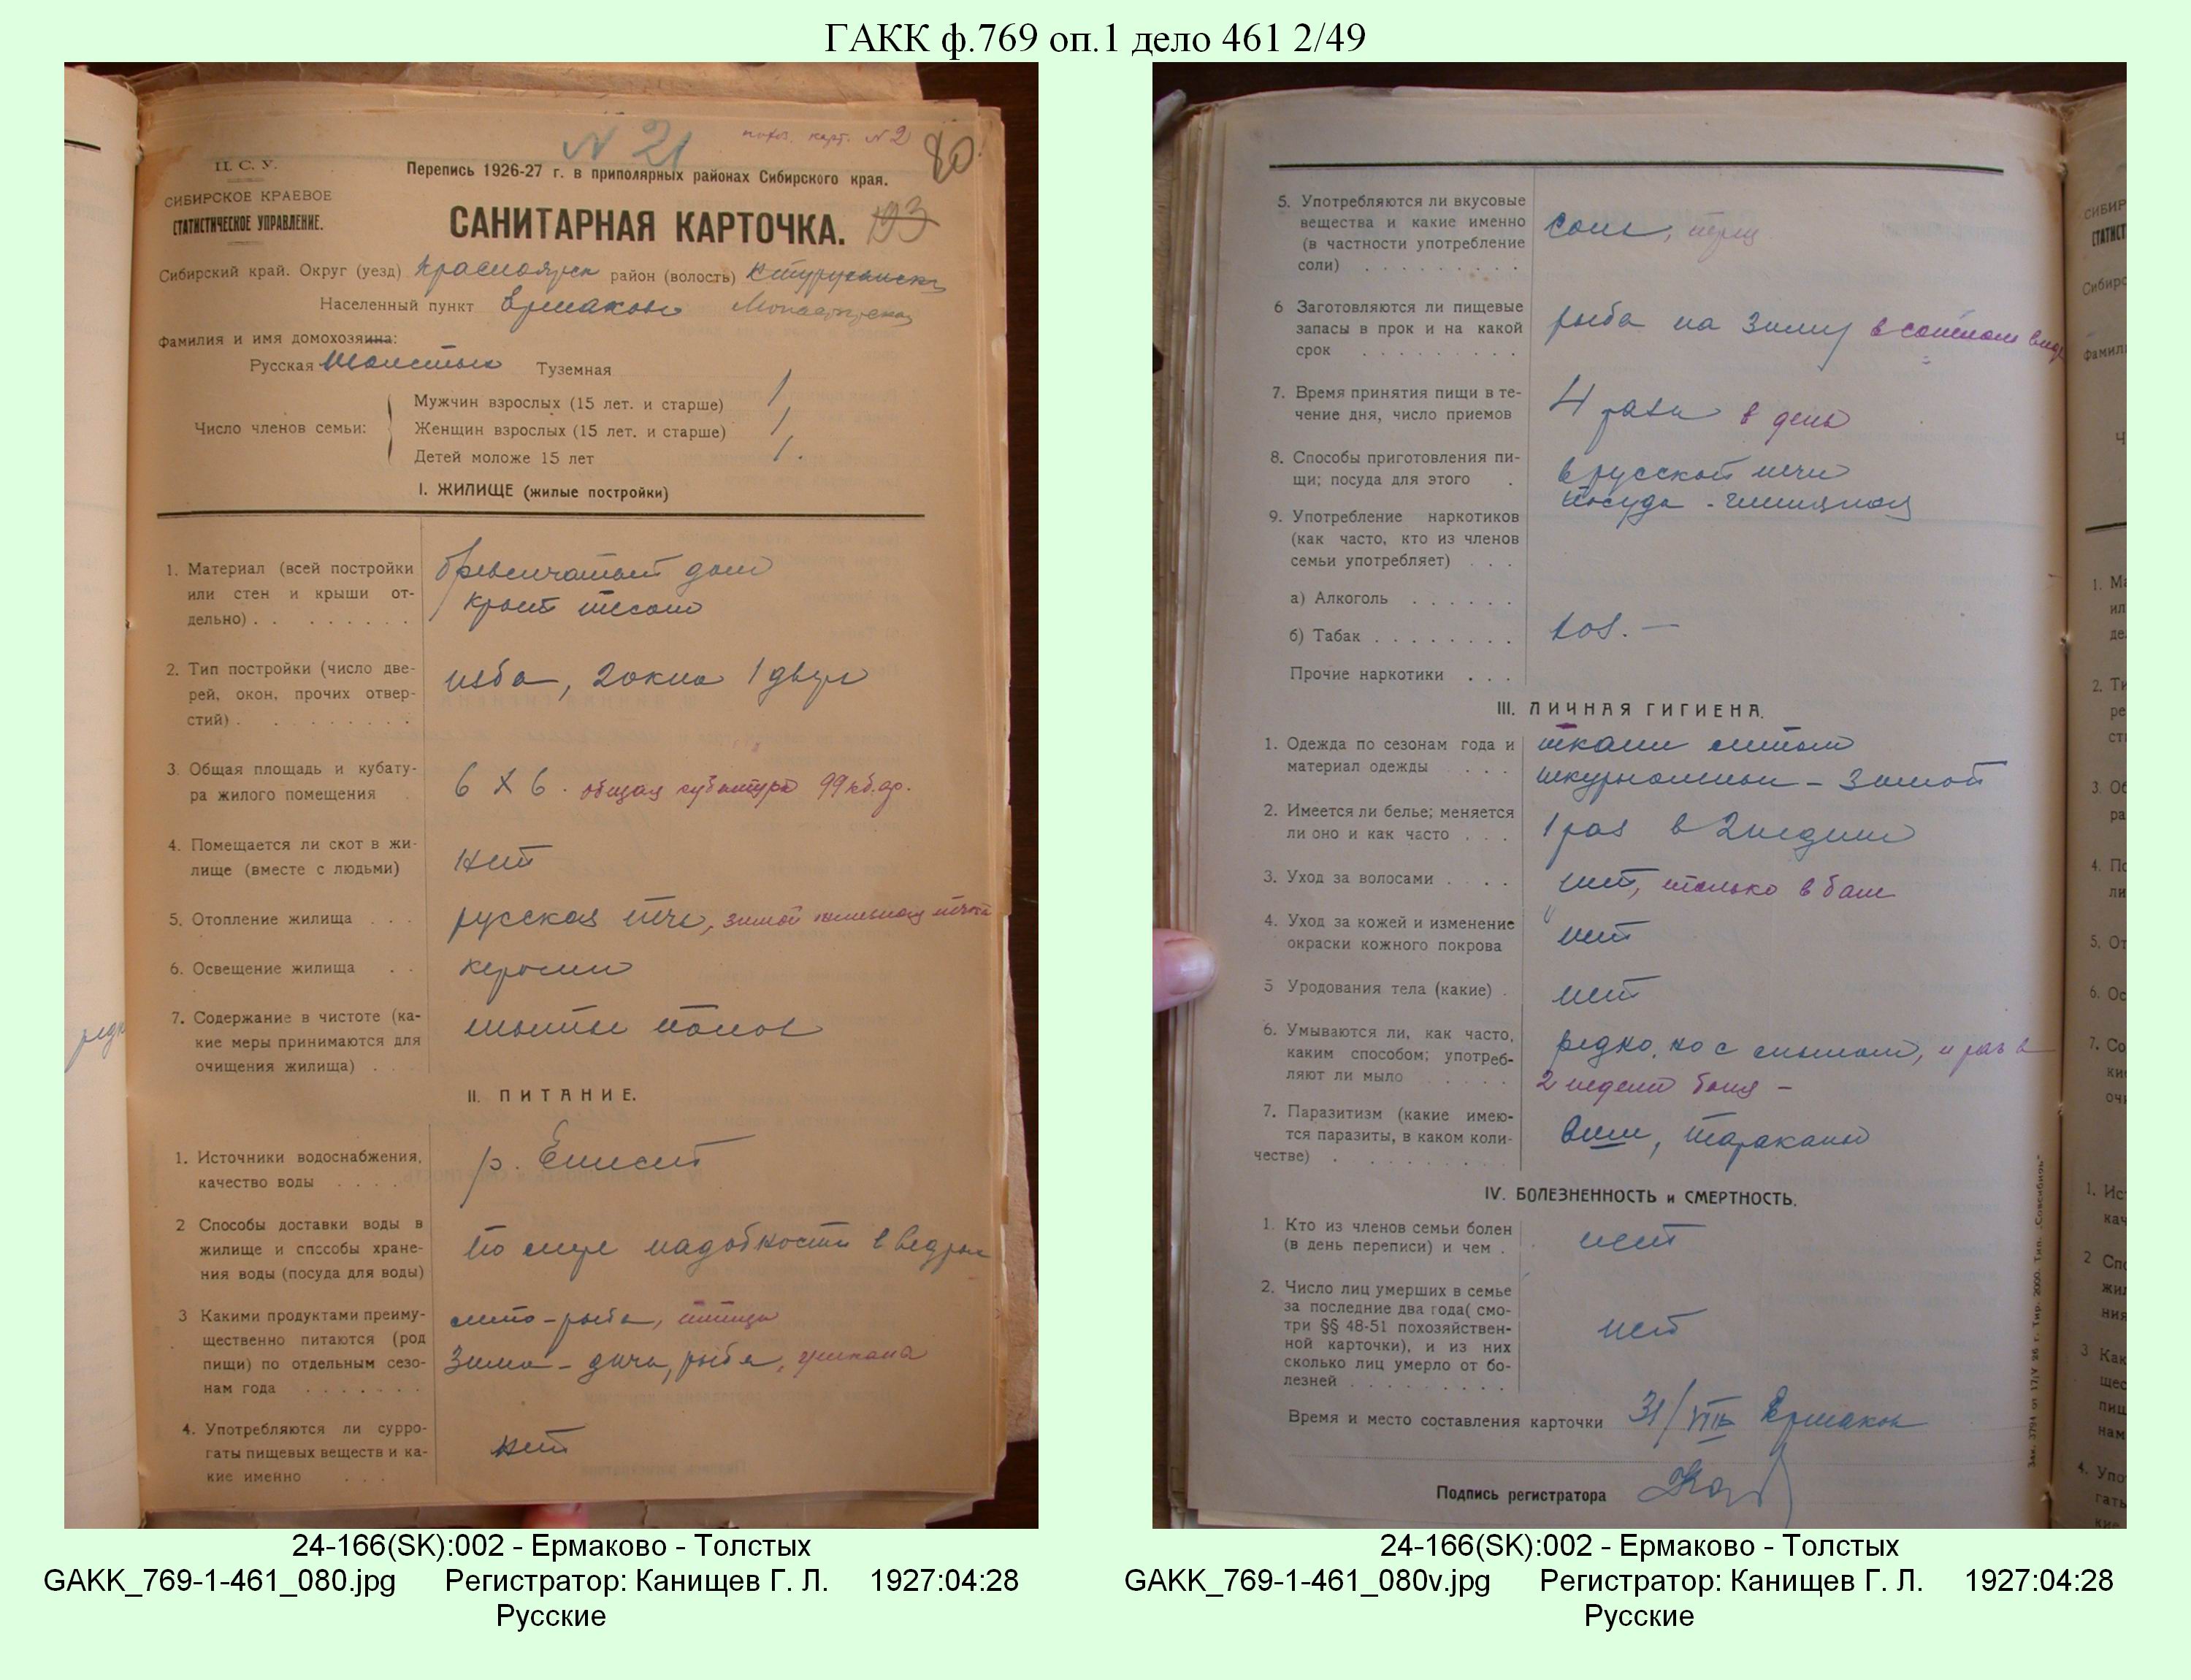 ГАКК ф.769 оп.1 дело 461 2/49
N 21
похоз. карт. N 2
80
Ц. С. У.
СИБИРСКОЕ КРАЕВОЕ
СТАТИСТИЧЕСКОЕ УПРАВЛЕНИЕ.
Перепись 1926-27 г. в приполярных районах Сибирского края.
САНИТАРНАЯ КАРТОЧКА.
193
Сибирский край. Округ (уезд) Красноярск район (волость)
Населенный пункт Ермаково
Фамилия и имя домохозяина:
Русская Толстых Туземная
Число членов семьи:
Мужчин взрослых (15 лет. и старше) 1
Женщин взрослых (15 лет. и старше) 1
Детей моложе 15 лет 1.
I. ЖИЛИЩЕ (жилые постройки)
1. Материал (всей постройки
или стен и крыши от-
дельно) . . . . . . . . .
бревенчатый дом
крыт тесом
2. Тип постройки (число две-
рей, окон, прочих отвер-
стий) . . . . . . . . .
изба, 2 окна 1 дверь
3. Общая площадь и кубату-
ра жилого помещения
6 X 6. общая кубатура 99 кб. ар.
4. Помещается ли скот в жи-
лище (вместе с людьми)
нет
5. Отопление жилища . . .
русская печь, зимой железная печка
6. Освещение жилища . .
керосин
7. Содержание в чистоте (ка-
кие меры принимаются для
очищения жилища) . . .
мытье полов
II. ПИТАНИЕ.
1. Источники водоснабжения,
качество воды . . . .
р. Енисей
2 Способы доставки воды в
жилище и способы хране-
ния воды (посуда для воды)
по мере надобности в ведрах
3 Какими продуктами преиму-
щественно питаются (род
пищи) по отдельным сезо-
нам года . . . . . . .
лето - рыба, птица
Зима - дичь, рыба,
4. Употребляются ли сурро-
гаты пищевых веществ и ка-
кие именно . . .
нет
24-166(SK):002 - Ермаково - Толстых
GAKK_769-1-461_080.jpg Регистратор: Канищев Г. Л. 1927:04:28
Русские
5. Употребляются ли вкусовые
вещества и какие именно
(в частности употребление
соли) . . . . . . . . .
соль, перец
6 Заготовляются ли пищевые
запасы в прок и на какой
срок . . . . . . . . .
рыба на зиму в соленом виде
7. Время принятия пищи в те-
чение дня, число приемов
4 раза в день
8. Способы приготовления пи-
щи; посуда для этого .
в русской печи
посуда -
9. Употребление наркотиков
(как часто, кто из членов
семьи употребляет) . . .
а) Алкоголь . . . . . .
б) Табак . . . . . . . .
хоз. —
Прочие наркотики . . .
III. ЛИЧНАЯ ГИГИЕНА.
1. Одежда по сезонам года и
материал одежды . . .
ткани летом
шкурами - зимой
2. Имеется ли белье; меняется
ли оно и как часто . . .
1 раз в 2 недели
3. Уход за волосами . . . .
нет, только в бане
4. Уход за кожей и изменение
окраски кожного покрова
нет
5 Уродования тела (какие) .
нет
6. Умываются ли, как часто,
каким способом; употреб-
ляют ли мыло . . . . .
редко, но с мылом, и раз в
2 недели баня -
7. Паразитизм (какие имею-
тся паразиты, в каком коли-
честве) . . . . . . . .
вши, тараканы
IV. БОЛЕЗНЕННОСТЬ и СМЕРТНОСТЬ.
1. Кто из членов семьи болен
(в день переписи) и чем .
нет
2. Число лиц умерших в семье
за последние два года( смо-
три §§ 48-51 похозяйствен-
ной карточки), и из них
сколько лиц умерло от бо-
лезней . . . . . . . . .
нет
Время и место составления карточки 31/VIII Ермаково
Подпись регистратора
24-166(SK):002 - Ермаково - Толстых
GAKK_769-1-461_080v.jpg Регистратор: Канищев Г. Л. 1927:04:28
Русские